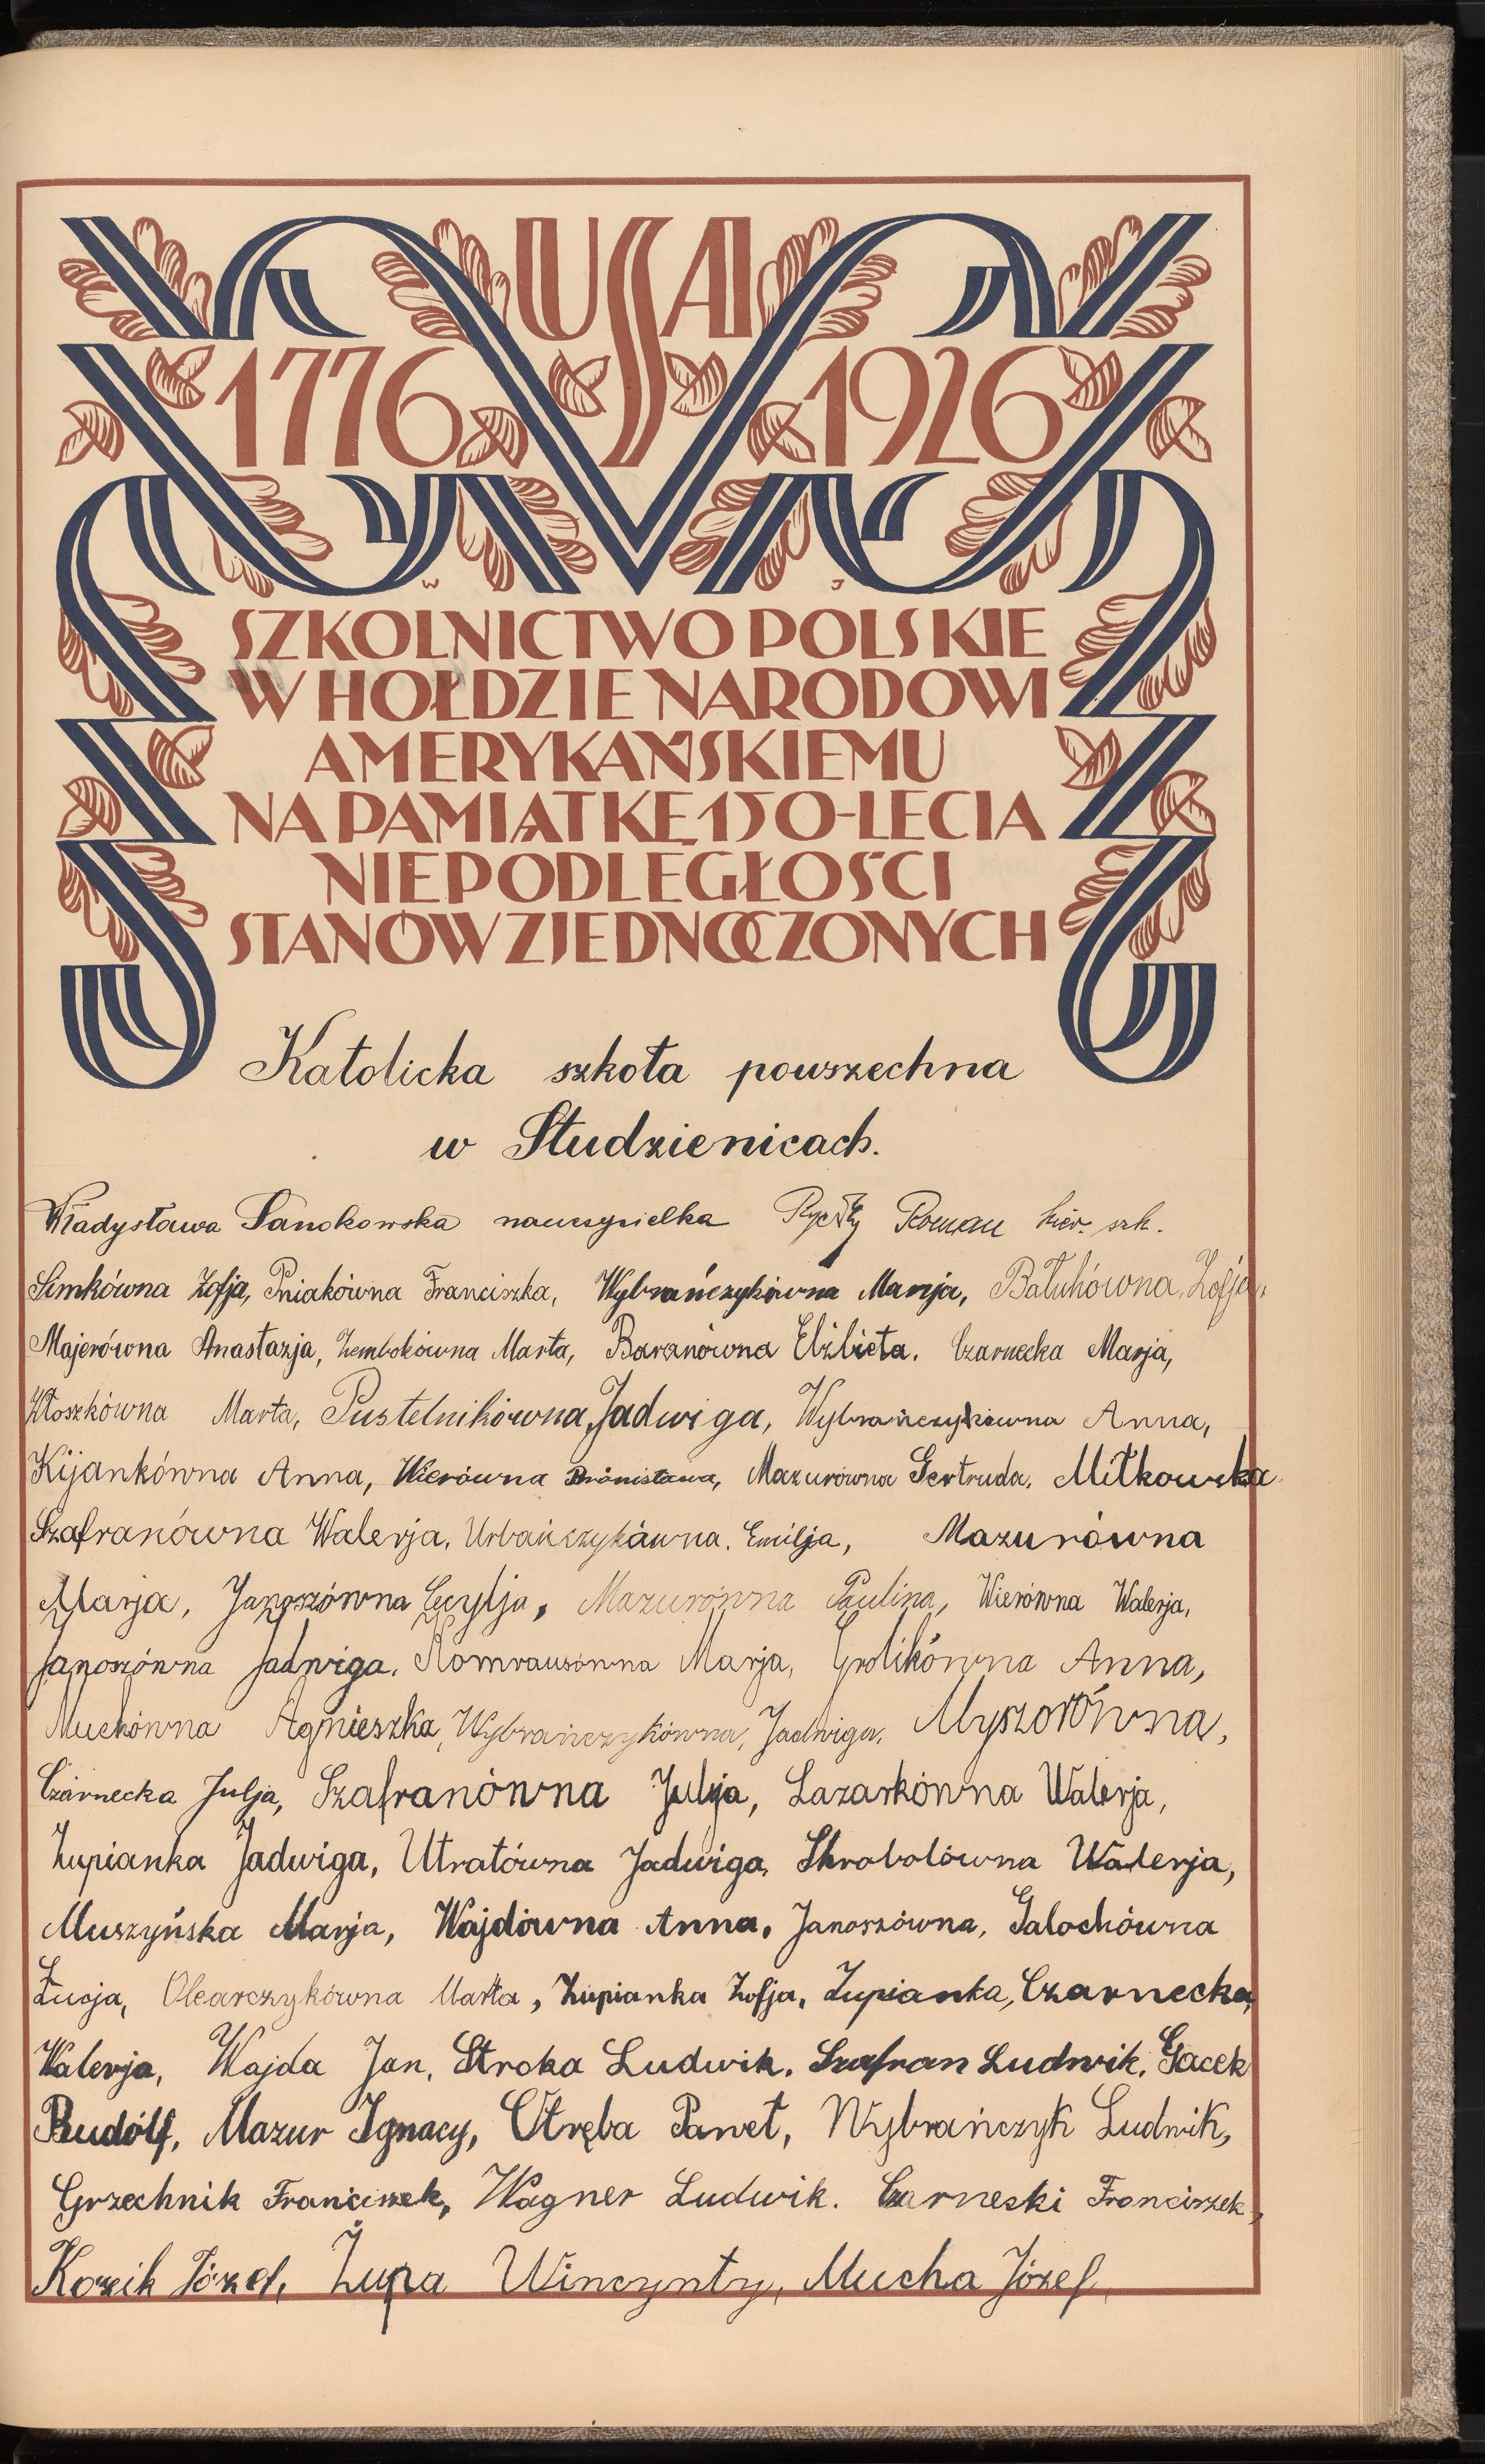 USA
1776 1926
W J
SZKOLNICTWO POLSKIE
W HOŁDZIE NARODOWI
AMERYKAŃSKIEMU
NA PAMIĄTKĘ 150-LECIA
NIEPODLEGŁOŚCI
STANÓW ZJEDNOCZONYCH
Katolicka szkoła powszechna
w Studzienicach.
Władysława Sanokowska nauczycielka Roman kier. szk.
Simkówna Zofja, Pniakówna Franciszka, Wybrańczykówna Marija, Zofja,
Majerówna Anastazja, Zembokówna Marta, Baranówna Elżbieta. Czarnecka Marja,
Kłoszkówna Marta, Pustelnikówna Jadwiga, Wybrańczykówna Anna,
Kijankówna Anna, Wierówna Bronisława, Mazurówna Gertruda. Mitkowska
Szafranówna Walerja, Urbańczykówna. Emilja, Mazurówna
Marja, Janoszówna Cecylja, Mazurówna Paulina, Wierówna Walerja,
Janoszówna Jadwiga. Komrausówna Marja, Grolikówna Anna,
Muchówna Agnieszka, Wybrańczykówna, Jadwiga. Myszorówna,
Czarnecka Julja, Szafranówna Julja, Lazarkówna Walerja,
Żupianka Jadwiga, Utratówna Jadwiga, Skrobolówna Walerja,
Muszyńska Marja, Wajdówna Anna, Janoszówna, Galochówna
Łucja, Olearczykówna Marta, Żupianka Zofja, Żupianka, Czarnecka
Walerja, Wajda Jan, Stroka Ludwik. Szafran Ludwik. Gacek
Rudolf, Mazur Ignacy, Otręba Paweł, Wybrańczyk Ludwik,
Grzechnik Franciszek, Wagner Ludwik. Czarneski Franciszek,
Kozik Józef, Żupa Wincynty, Mucha Józef,